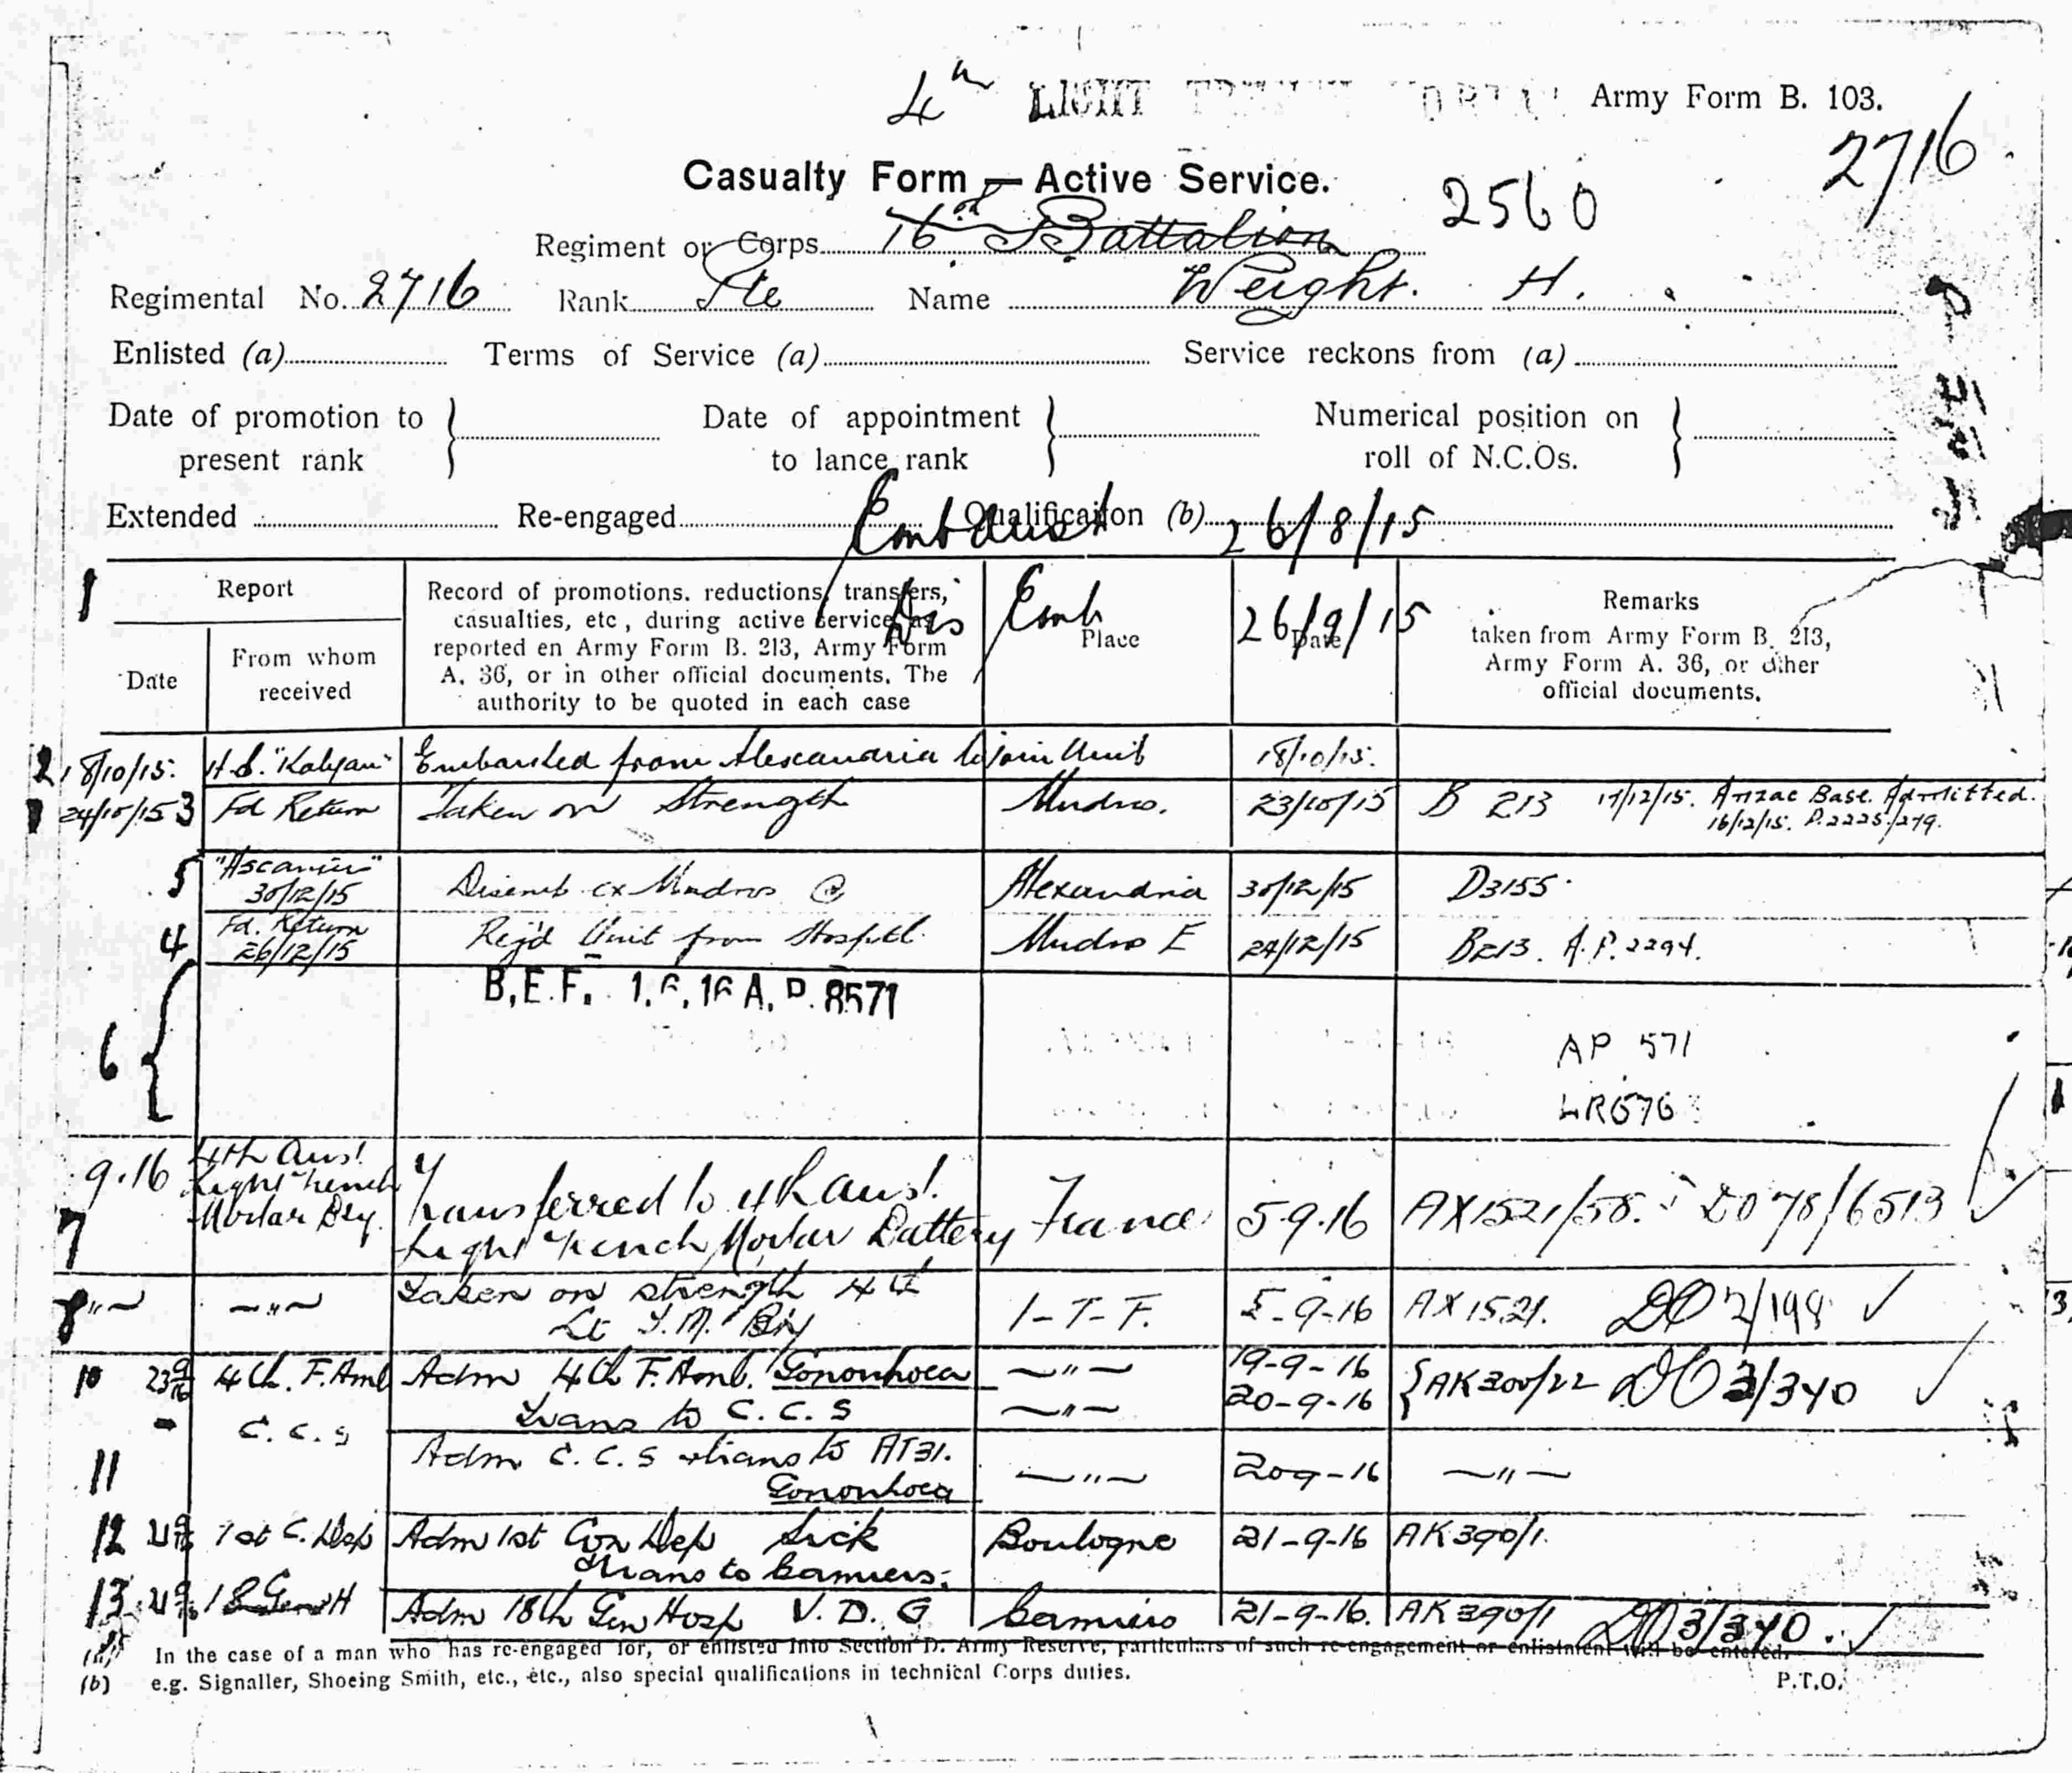 4th LIGHT TRENCH MORTAR Army Form B. 103.
2716
Casualty Form — Active Service.
2560
Regiment or Corps 16 Battalion
Regimental No. 2716 Rank Pte Name Weight. H.
Enlisted (a) Terms of Service (a) Service reckons from (a)
Date of promotion to present rank } Date of appointment to lance rank } Numerical position on roll of N.C.Os. }
Extended Re-engaged Qualification (b)
Emb Aust 26/8/15
Dis Emb 26/9/15
1
Report
Date
From whom received
Record of promotions, reductions, transfers,
casualties, etc, during active service, as
reported en Army Form B. 213, Army Form
A. 36, or in other official documents. The
authority to be quoted in each case
Place
Date
Remarks
taken from Army Form B. 213,
Army Form A. 36, or other
official documents.
2 18/10/15. H.S. "Kalyan" Embarked from Alexandria to join Unit 18/10/15.
24/10/15 3 Fd Return Taken on Strength Mudros. 23/10/15 B 213 17/12/15. Anzac Base. Admitted.
16/12/15. P.2225/279.
5 "Ascanius" 30/12/15 Disemb ex Mudros Alexandria 30/12/15 D3155.
4 Fd. Return 26/12/15 Rej'd Unit from Hosptl. Mudros E 24/12/15 B213. A.P. 2294.
B.E.F. 1.6.16 A.P. 8571
6 {
AP 571
LR576
9.16 4th Aus! Light Trench Mortar Bty. Transferred to 4th Aus!. France 5.9.16 AX1521/58. DO 78/6513
7 Light Trench Mortar Battery
8 "
" Taken on strength 4th Lt T.M. Bty I-T-F. 5-9-16 AX 1521. DO 2/198
10 23 9/16 4th. F. Amb Adm 4th F. Amb. Gononhoea " 19-9-16 { AK300/22 DO 3/340
C.C.S Trans to C.C.S " 20-9-16
11 Adm C.C.S trans to AT31. Gononhoea " 20 9-16 "
12 21 9/16 1st C. Dep Adm 1st Con Dep Sick Boulogne 21-9-16 AK390/1.
Trans to Camiers.
13 21 9/16 18 Gen H Adm 18th Gen Hosp V.D.G Camiers 21-9-16. AK390/1 DO 3/340.
(a) In the case of a man who has re-engaged for, or enlisted into Section D. Army Reserve, particulars of such re-engagement or enlistment will be entered.
(b) e.g. Signaller, Shoeing Smith, etc., etc., also special qualifications in technical Corps duties.
P.T.O.